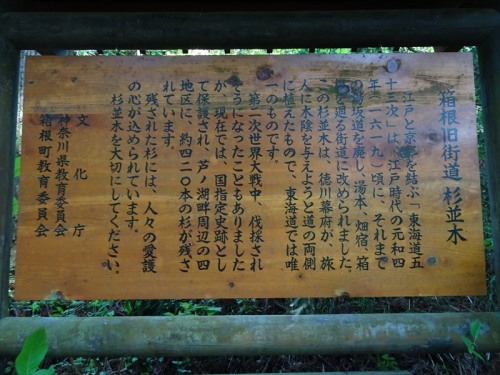 箱根旧街道 杉並木
江戸と京都を結ぶ「東海道五
十三次」は、江戸時代の元和四
年(一六一九)頃に、それまで
の湯坂道を廃し、湯本、畑宿、箱
根を廻る街道に改められました。
この杉並木は、徳川幕府が、旅
人に木陰を与えようと道の両側
に植えたもので、東海道では唯
一のものです。
第二次世界大戦中、伐採され
そうになったこともありました
が、現在では、国指定史跡とし
て保護され、芦ノ湖畔周辺の四
地区に、約四二〇本の杉が残さ
れています。
残された杉には、人々の愛護
の心が込められています。
杉並木を大切にしてください。
文化庁
神奈川県教育委員会
箱根町教育委員会